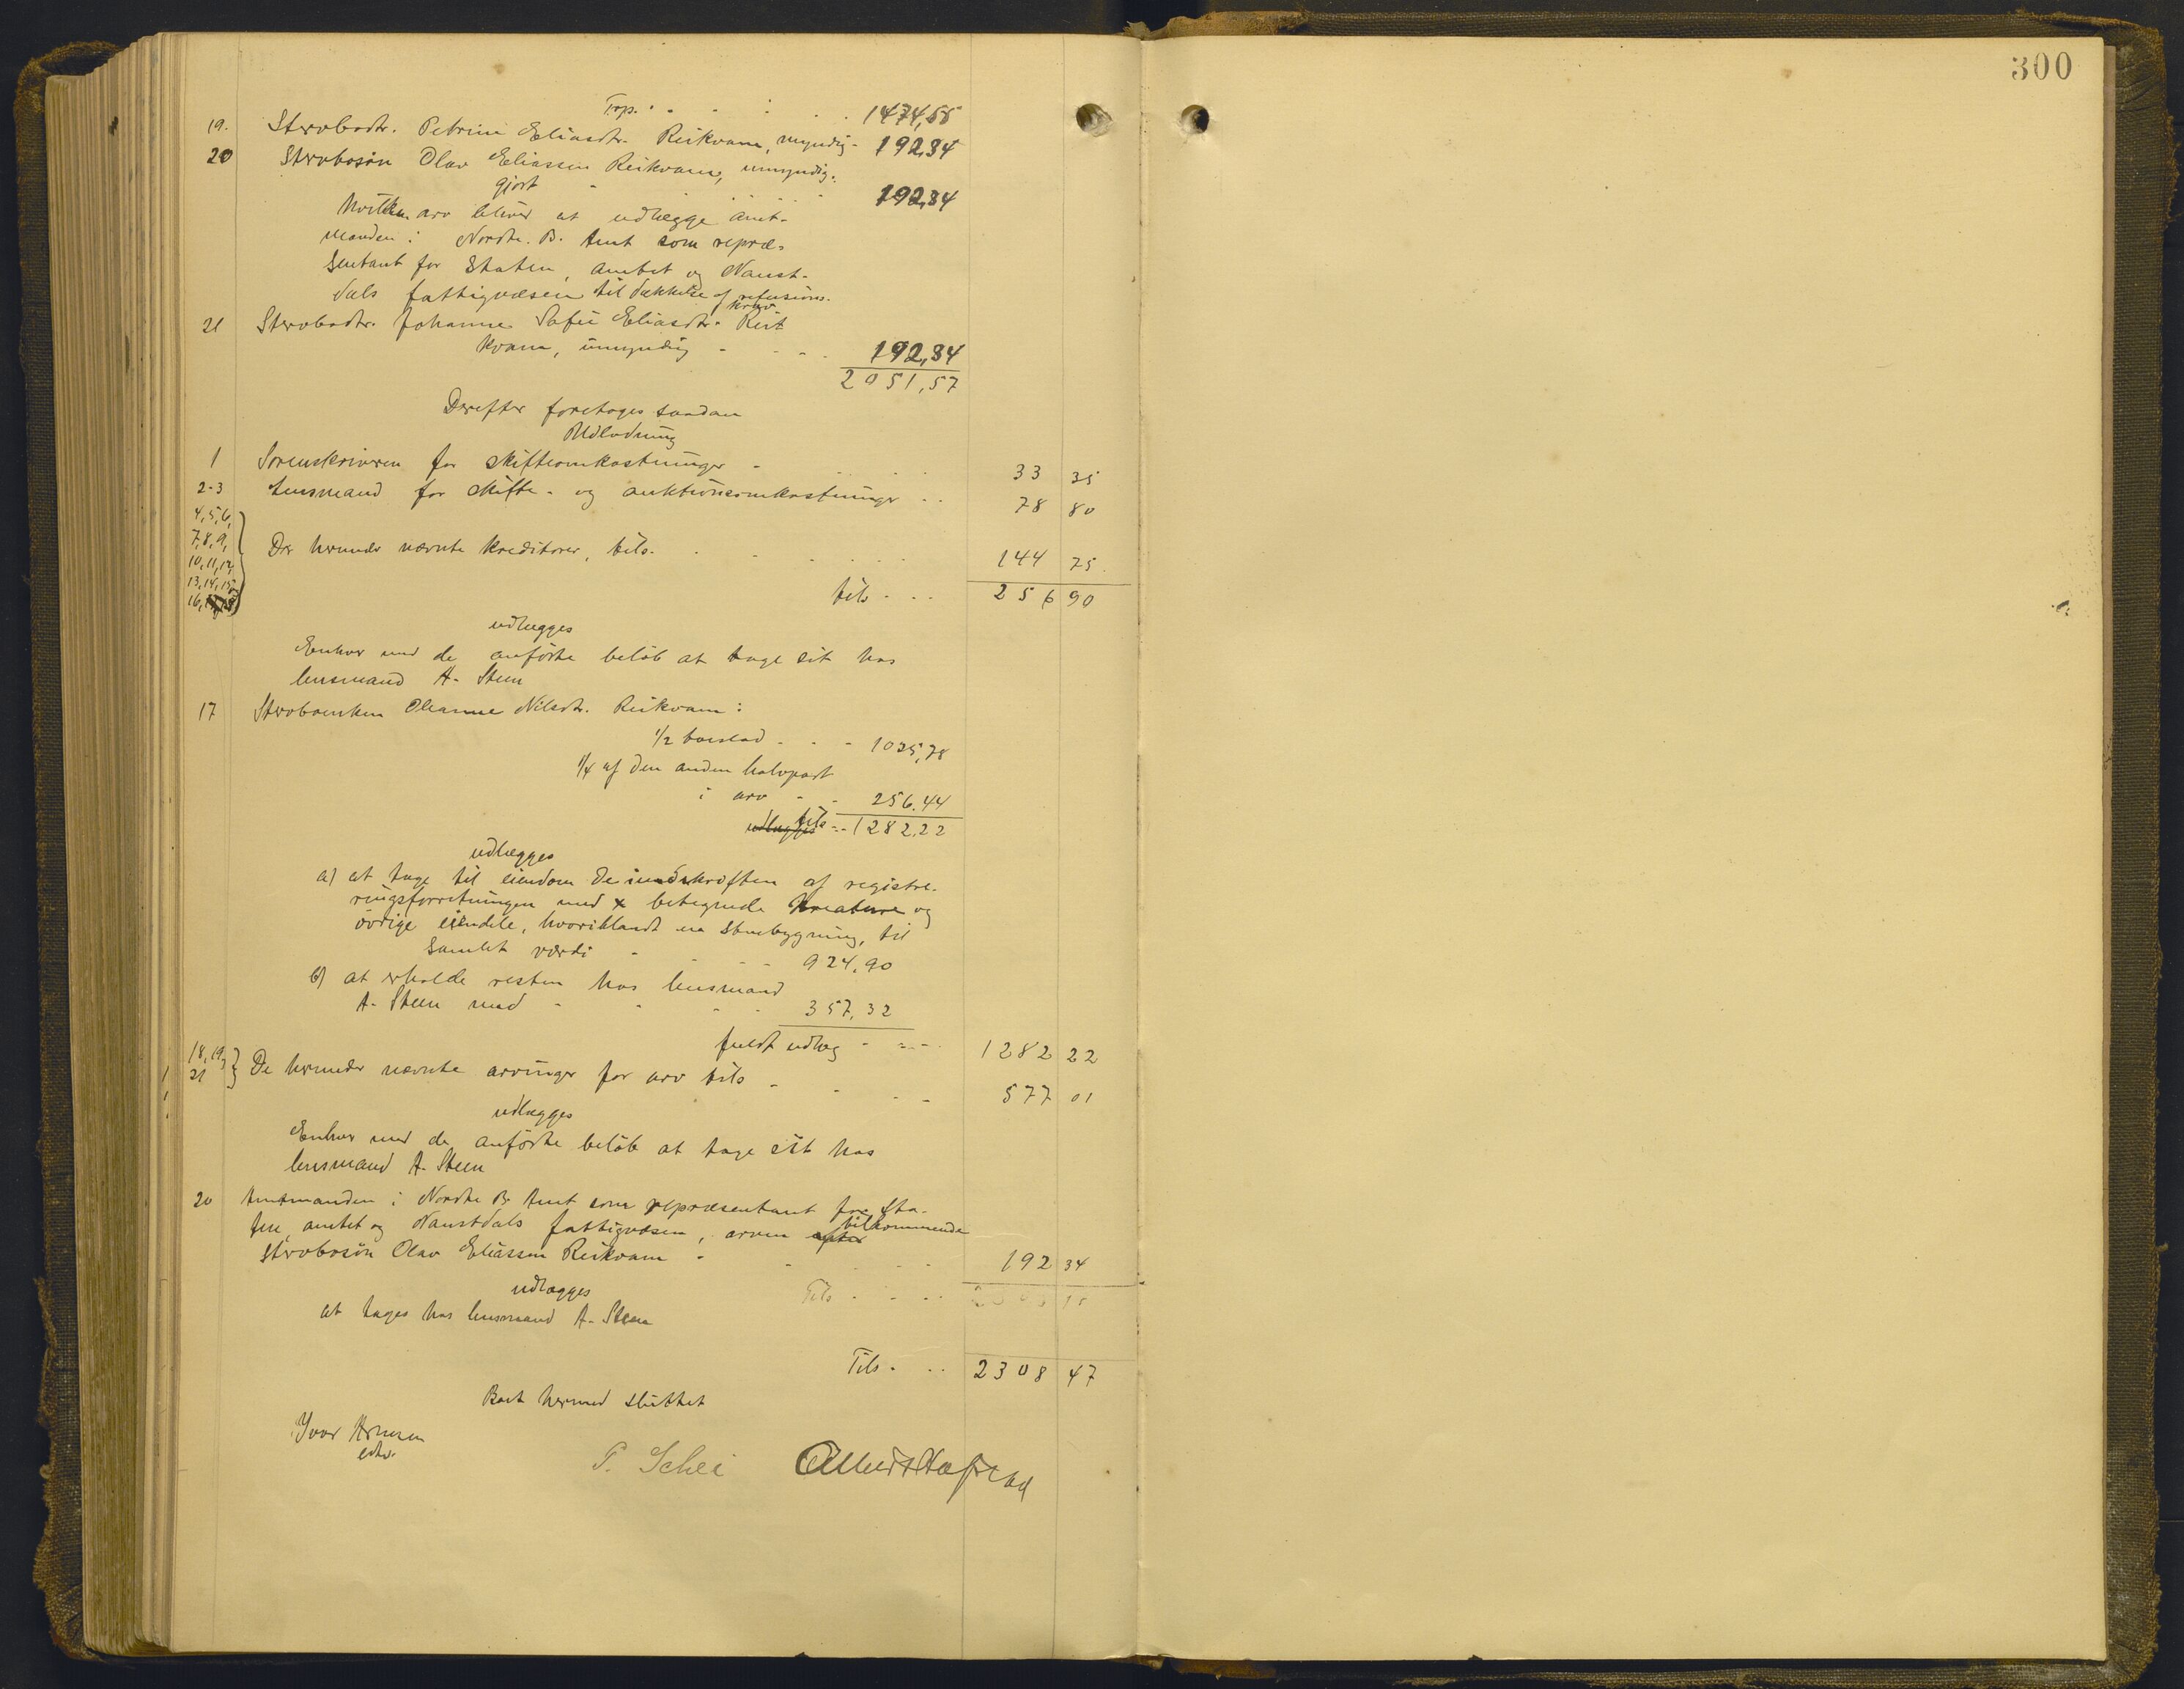 300
Trp. . . . 1474,55
19. Stervbodtr. Petrine Eliasdtr. Reikvam, myndig - 192,34
20 Stervbosön Olav Eliassen Reikvam, umyndig-
gjort - . . . 192,34
hvilken arv bliver at udlægge amt-
manden i Nordre B. Amt som repræ-
sentant for Staten, amtet og Naust-
dals fattigvæsen til dækkelse af refusions-
krav
21 Stervbodtr. Johanne Sofie Eliasdtr. Reik
kvam, umyndig - - - 192,34
2051,57
Derefter foretoges saadan
Udlodning
1 Sorenskriveren for skifteomkostninger - . . . 33 35
2-3 Lensmand for skifte- og auktionsomkostninger . . 78 80
4,5,6,
7,8,9,
10,11,12,
13,14,15,
16,
De herunder nævnte kreditorer, tils. . . . 144 75
tils - . . 256 90
udlægges
Enhver med de anförte belöb at tage sit hos
lensmand A. Steen
17 Stervboenken Oleanne Nilsdtr. Reikvam:
1/2 boeslod . . - 1025,78
1/4 af den anden halvpart
i arv - - 256.44
udlægges tils -- 1282,22
udlægges
a) at tage til eiendom de i udskriften af registre-
ringsforretningen med x betegnede kreature og
övrige eiendele, hvoriblandt en stuebygning, til
samlet værdi - - - - 924,90
b) at erholde resten hos lensmand
A. Steen med - - - - 357,32
fuldt udlæg - - - 1282 22
18,19,
21
De herunder nævnte arvinger for arv tils - - - - 577 01
udlægges
Enhver med de anförte belöb at tage sit hos
lensmand A. Steen
20 Amtmanden i Nordre B. Amt som repræsentant for Sta-
ten, amtet og Naustdals fattigvæsen, arven efter tilkommende
stervbosön Olav Eliassen Reikvam - - - - 192 34
udlægges Tils . . . .
at tages hos lensmand A. Steen
Tils. . . 2308 47
Boet hermed sluttet
P. Schei